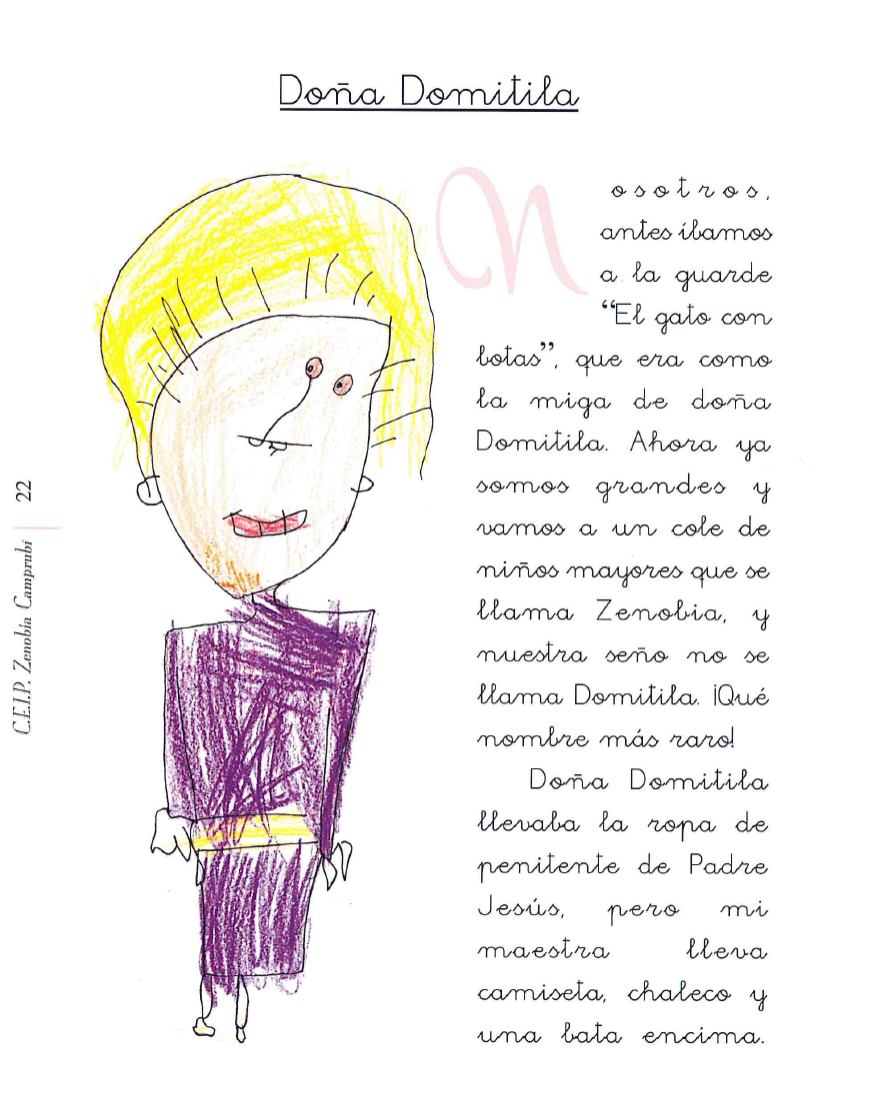 Doña Domitila
Nosotros,
antes íbamos
a la guarde
“El gato con
botas”, que era como
la miga de doña
Domitila. Ahora ya
somos grandes y
vamos a un cole de
niños mayores que se
llama Zenobia, y
nuestra seño no se
llama Domitila. ¡Qué
nombre más raro!
Doña Domitila
llevaba la ropa de
penitente de Padre
Jesús, pero mi
maestra lleva
camiseta, chaleco y
una bata encima.
C.E.I.P. Zenobia Camprubí | 22